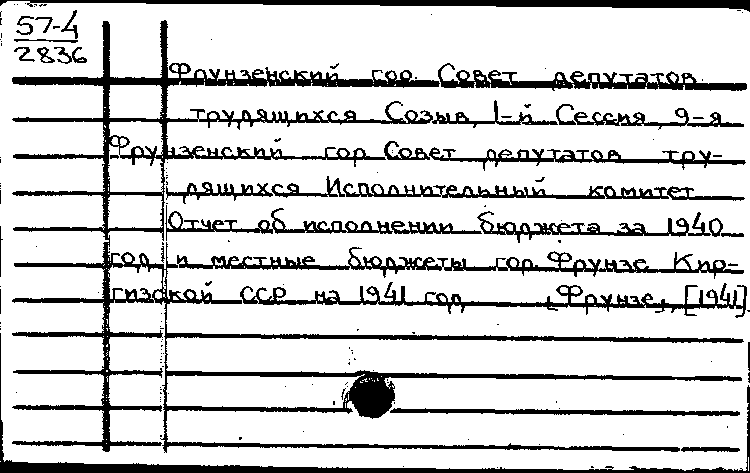 57-4
2836
Фрунзенский гор. Совет депутатов
трудящихся Созыв, 1-й Сессия, 9-я
Фрунзенский гор Совет депутатов тру-
дящихся Исполнительный комитет
Отчет об исполнении бюджета за 1940
год и местные бюджеты гор. Фрунзе Кир-
гизской ССР на 1941 год „Фрунзе", [1941]